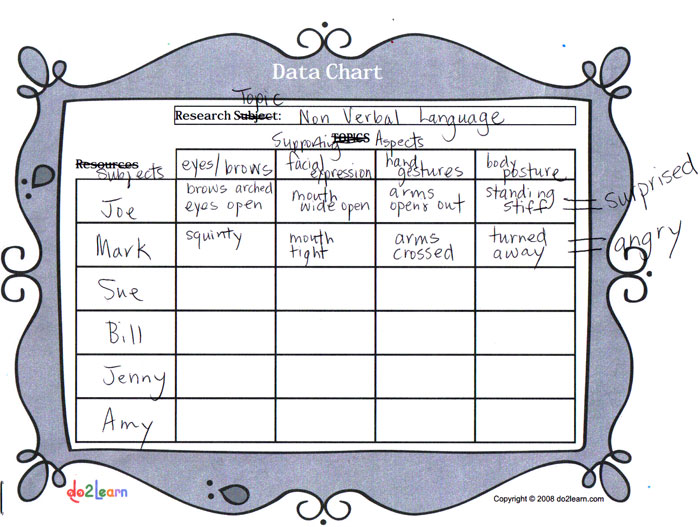 Data Chart
Topic
Research Subject: Non Verbal Language
Supporting TOPICS Aspects
Resources
Subjects
eyes/brows
facial expression
hand gestures
body posture
Joe
brows arched
eyes open
mouth
wide open
arms
open & out
standing
stiff
surprised
Mark
squinty
mouth
tight
arms
crossed
turned
away
angry
Sue
Bill
Jenny
Amy
do2learn
Copyright © 2008 do2learn.com